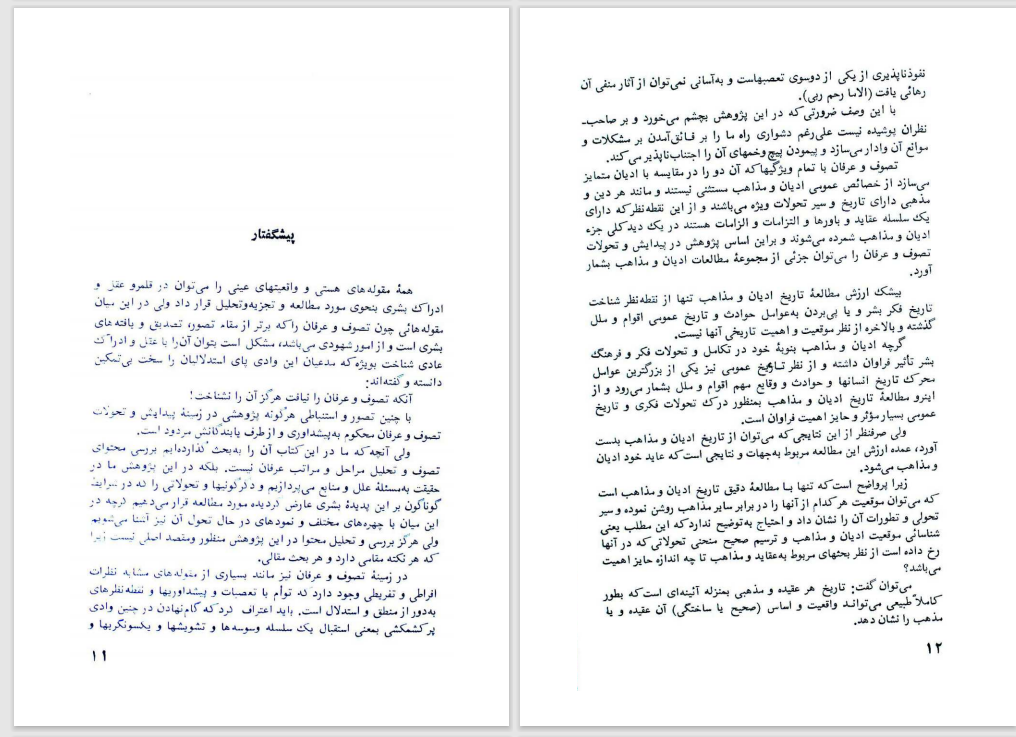 پیشگفتار
همهٔ مقوله‌های هستی و واقعیتهای عینی را می‌توان در قلمرو عقل و
ادراك بشری بنحوی مورد مطالعه و تجزیه‌وتحلیل قرار داد ولی در این میان
مقوله‌هائی چون تصوف و عرفان راکه برتر از مقام تصور، تصدیق و یافته‌های
بشری است و از امور شهودی می‌باشد، مشکل است بتوان آن‌را با عقل و ادراك
عادی شناخت بویژه‌که مدعیان این وادی پای استدلالیان را سخت بی‌تمکین
دانسته و گفته‌اند:
آنکه تصوف و عرفان را نیافت هرگز آن را نشناخت!
با چنین تصور و استنباطی هرگونه پژوهشی در زمینهٔ پیدایش و تحولات
تصوف و عرفان محکوم به‌پیشداوری و از طرف پابندگانش مردود است.
ولی آنچه‌که ما در این کتاب آن را به‌بحث گذارده‌ایم بررسی محتوای
تصوف و تحلیل مراحل و مراتب عرفان نیست. بلکه در این پژوهش ما در
حقیقت به‌مسئلهٔ علل و منابع می‌پردازیم و دگرگونیها و تحولاتی را که در شرایط
گوناگون بر این پدیدهٔ بشری عارض گردیده مورد مطالعه قرار می‌دهیم گرچه در
این میان با چهره‌های مختلف و نمودهای در حال تحول آن نیز آشنا می‌شویم
ولی هرگز بررسی و تحلیل محتوا در این پژوهش منظور ومقصد اصلی نیست زیرا
که هر نکته مقامی دارد و هر بحث مقالی.
در زمینهٔ تصوف و عرفان نیز مانند بسیاری از مقوله‌های مشابه نظرات
افراطی و تفریطی وجود دارد که توأم با تعصبات و پیشداوریها و نقطه‌نظرهای
به‌دور از منطق و استدلال است. باید اعتراف کرد که گام‌نهادن در چنین وادی
پرکشمکشی بمعنی استقبال یك سلسله وسوسه‌ها و تشویشها و یکسونگریها و
۱۱
نفوذناپذیری از یکی از دوسوی تعصبهاست و به‌آسانی نمی‌توان از آثار منفی آن
رهائی یافت (الاما رحم ربی).
با این وصف ضرورتی‌که در این پژوهش بچشم می‌خورد و بر صاحب‌ـ
نظران پوشیده نیست علی‌رغم دشواری راه ما را بر فـائق‌آمدن بر مشکلات و
موانع آن وادار می‌سازد و پیمودن پیچ‌وخمهای آن را اجتناب‌ناپذیر می‌کند.
تصوف و عرفان با تمام ویژگیهاکه آن دو را در مقایسه با ادیان متمایز
می‌سازد از خصائص عمومی ادیان و مذاهب مستثنی نیستند و مانند هر دین و
مذهبی دارای تاریخ و سیر تحولات ویژه می‌باشند و از این نقطه‌نظرکه دارای
یك سلسله عقاید و باورها و التزامات و الزامات هستند در یك دید کلی جزء
ادیان و مذاهب شمرده می‌شوند و براین اساس پژوهش در پیدایش و تحولات
تصوف و عرفان را می‌توان جزئی از مجموعهٔ مطالعات ادیان و مذاهب بشمار
آورد.
بیشك ارزش مطالعهٔ تاریخ ادیان و مذاهب تنها از نقطه‌نظر شناخت
تاریخ فکر بشر و یا پی‌بردن به‌عوامل حوادث و تاریخ عمومی اقوام و ملل
گذشته و بالاخره از نظر موقعیت و اهمیت تاریخی آنها نیست.
گرچه ادیان و مذاهب بنوبهٔ خود در تکامل و تحولات فکر و فرهنگ
بشر تأثیر فراوان داشته و از نظر تـاریخ عمومی نیز یکی از بزرگترین عوامل
محرك تاریخ انسانها و حوادث و وقایع مهم اقوام و ملل بشمار می‌رود و از
اینرو مطالعهٔ تاریخ ادیان و مذاهب بمنظور درك تحولات فکری و تاریخ
عمومی بسیار مؤثر و حایز اهمیت فراوان است.
ولی صرفنظر از این نتایجی‌که می‌توان از تاریخ ادیان و مذاهب بدست
آورد، عمده ارزش این مطالعه مربوط به‌جهات و نتایجی است‌که عاید خود ادیان
و مذاهب می‌شود.
زیرا پرواضح است‌که تنها بـا مطالعهٔ دقیق تاریخ ادیان و مذاهب است
که می‌توان موقعیت هر کدام از آنها را در برابر سایر مذاهب روشن نموده و سیر
تحولی و تطورات آن را نشان داد و احتیاج به‌توضیح ندارد‌که این مطلب یعنی
شناسائی موقعیت ادیان و مذاهب و ترسیم صحیح منحنی تحولاتی‌که در آنها
رخ داده است از نظر بحثهای مربوط به‌عقاید و مذاهب تا چه اندازه حایز اهمیت
می‌باشد؟
می‌توان گفت: تاریخ هر عقیده و مذهبی بمنزله آئینه‌ای است‌که بطور
کاملاً طبیعی می‌توانـد واقعیت و اساس (صحیح یا ساختگی) آن عقیده و یا
مذهب را نشان دهد.
۱۲